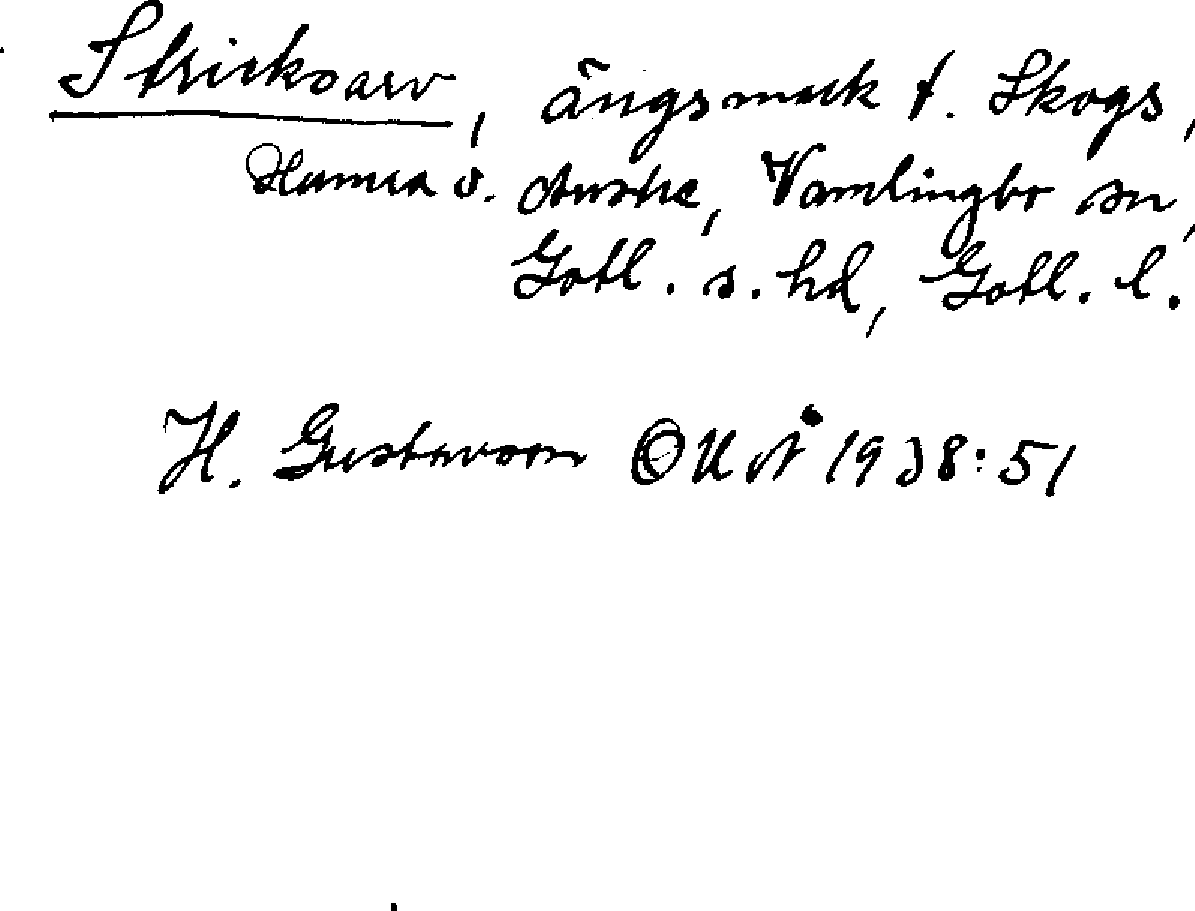 Stricksarv, ängsmark t. Skogs,
Hamra o. Austre, Vamlingbo sn,
Gotl. s. hd, Gotl. l.
H. Gustavson OUÅ 1938:51